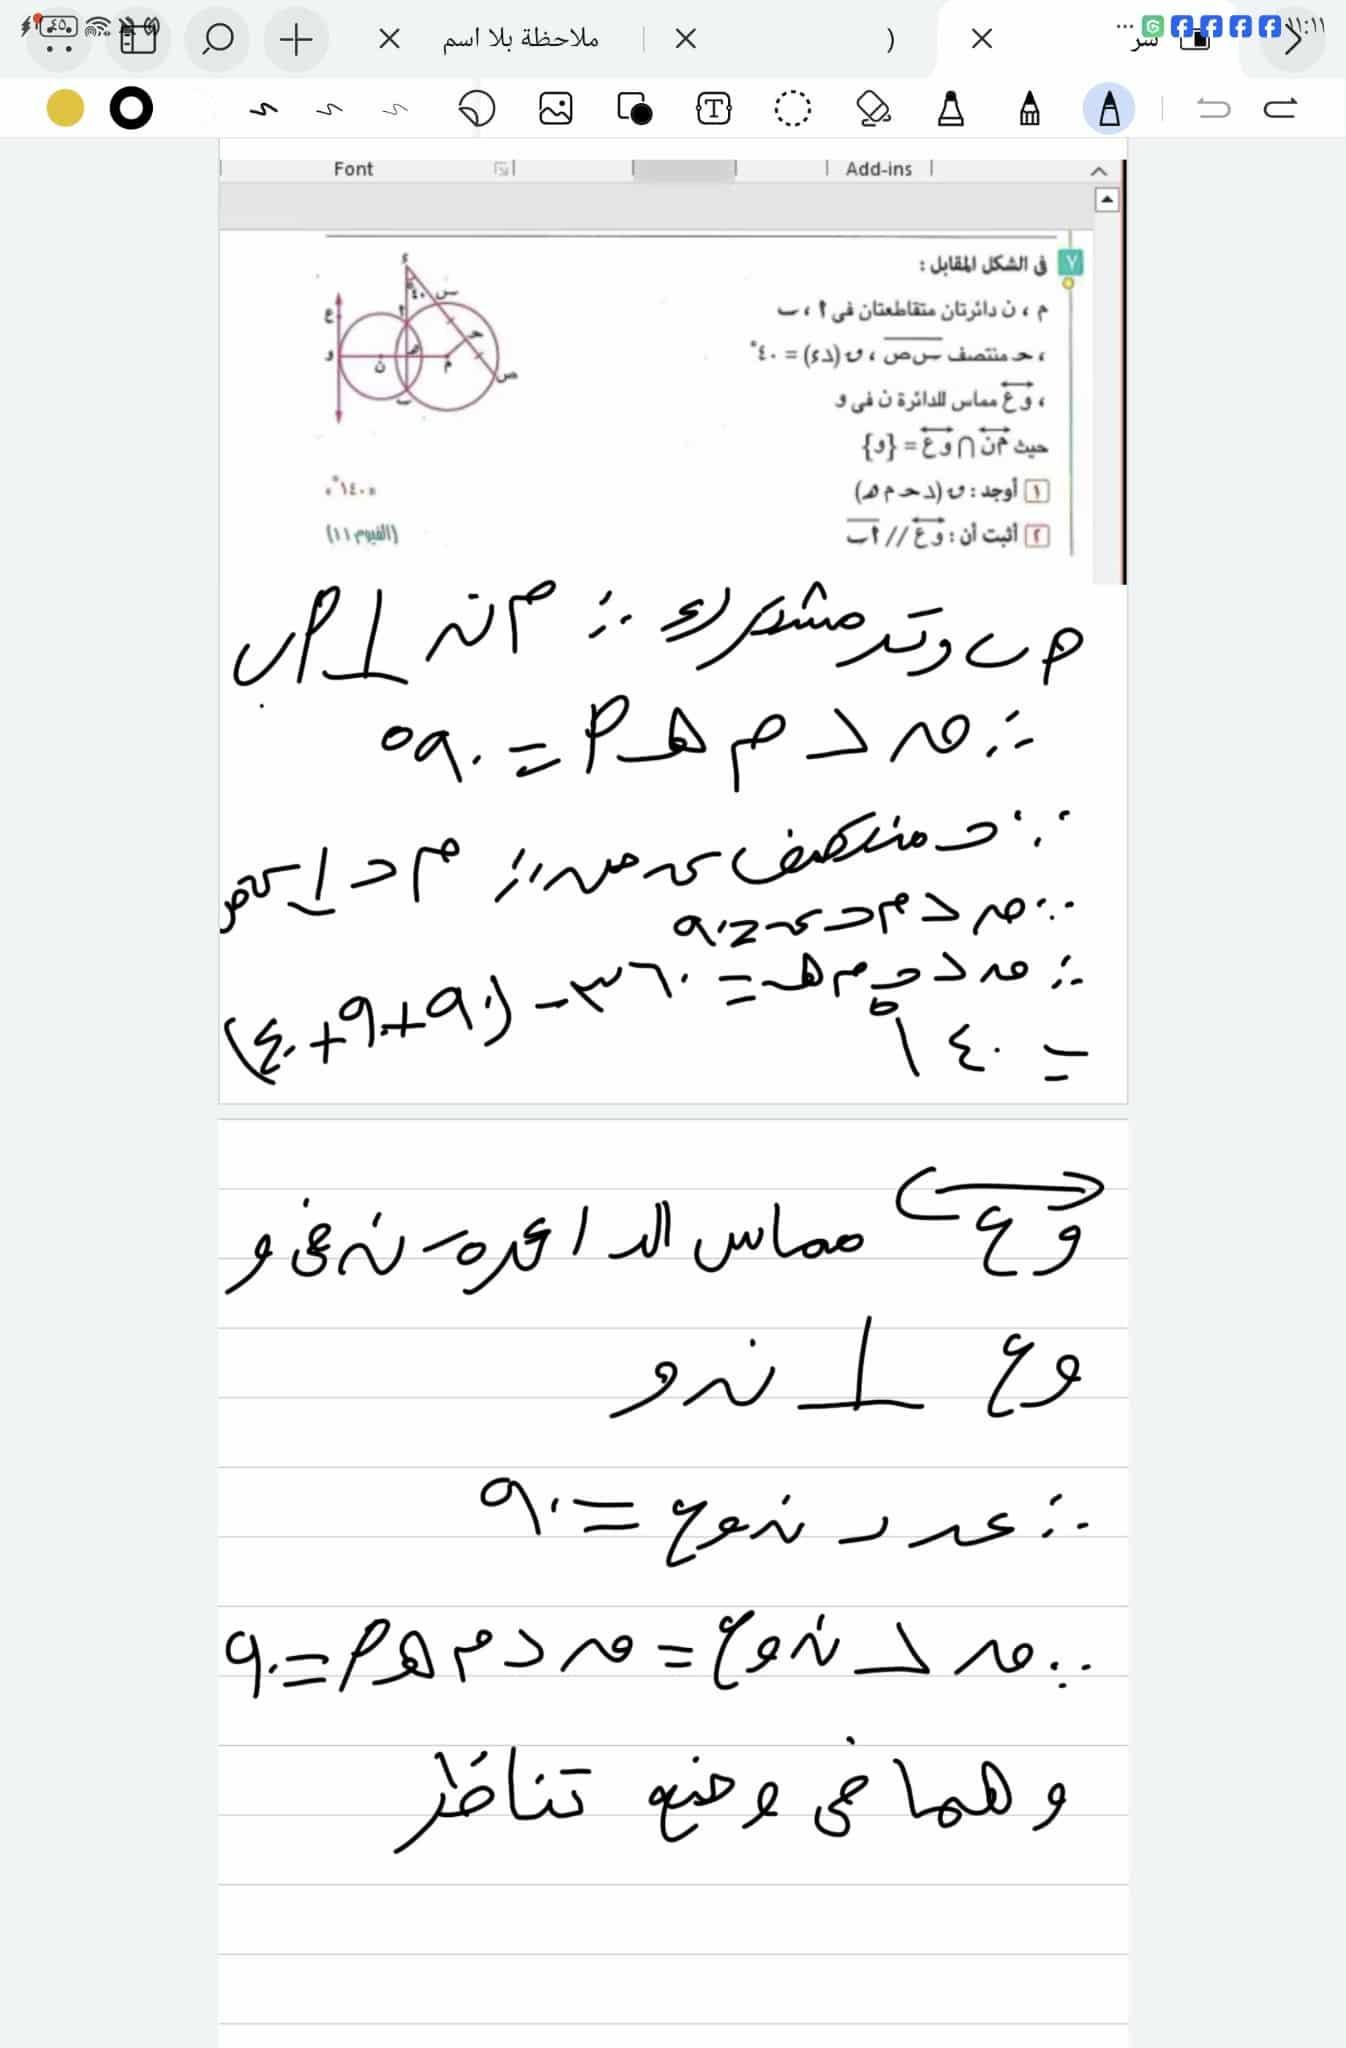 ١١:١١
ملاحظة بلا اسم
Font Add-ins
٧ فى الشكل المقابل :
م ، ن دائرتان متقاطعتان فى أ ، ب
، حـ منتصف س ص ، ق (د ء) = ٤٠°
، و ع مماس للدائرة ن فى و
حيث م ن ∩ و ع = {و}
١ أوجد : ق (د حـ م هـ)
«١٤٠°»
٢ أثبت أن : و ع // أ ب
(الفيوم ١١)
ء
٤٠°
س
أ
ع
حـ
هـ
و
ن
م
ص
ب
أ ب وتر مشترك ∴ م ن ⊥ أ ب
∴ ق د م هـ أ = ٩٠°
∵ حـ منتصف س ص ∴ م حـ ⊥ س ص
∴ ق د م حـ س = ٩٠
∴ ق د حـ م هـ = ٣٦٠ − (٩٠+٩٠+٤٠)
= ١٤٠°
و ع مماس الدائرة ن فى و
و ع ⊥ ن و
∴ ق د ن و ع = ٩٠
∴ ق د ن و ع = ق د م هـ أ = ٩٠
وهما فى وضع تناظر